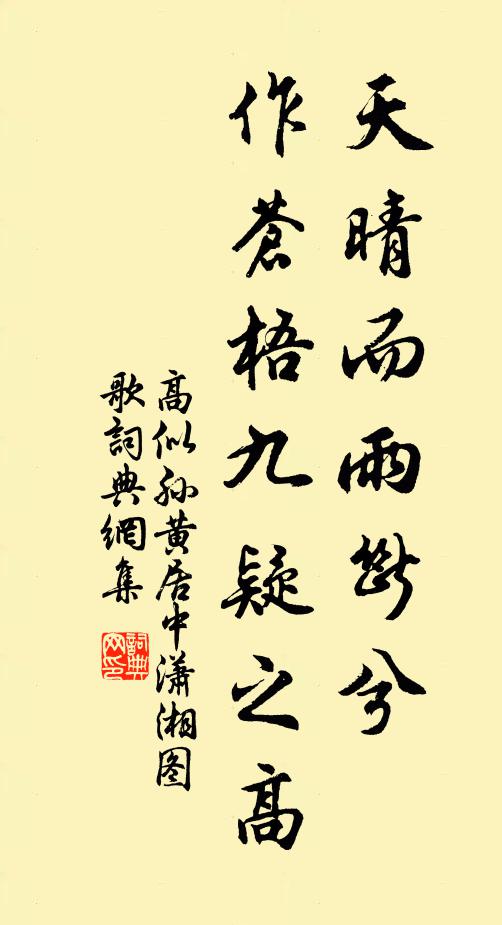 天晴而雨斷兮
作蒼梧九疑之高
高似孫黄居中瀟湘图
歌詞典網集
詞典网印